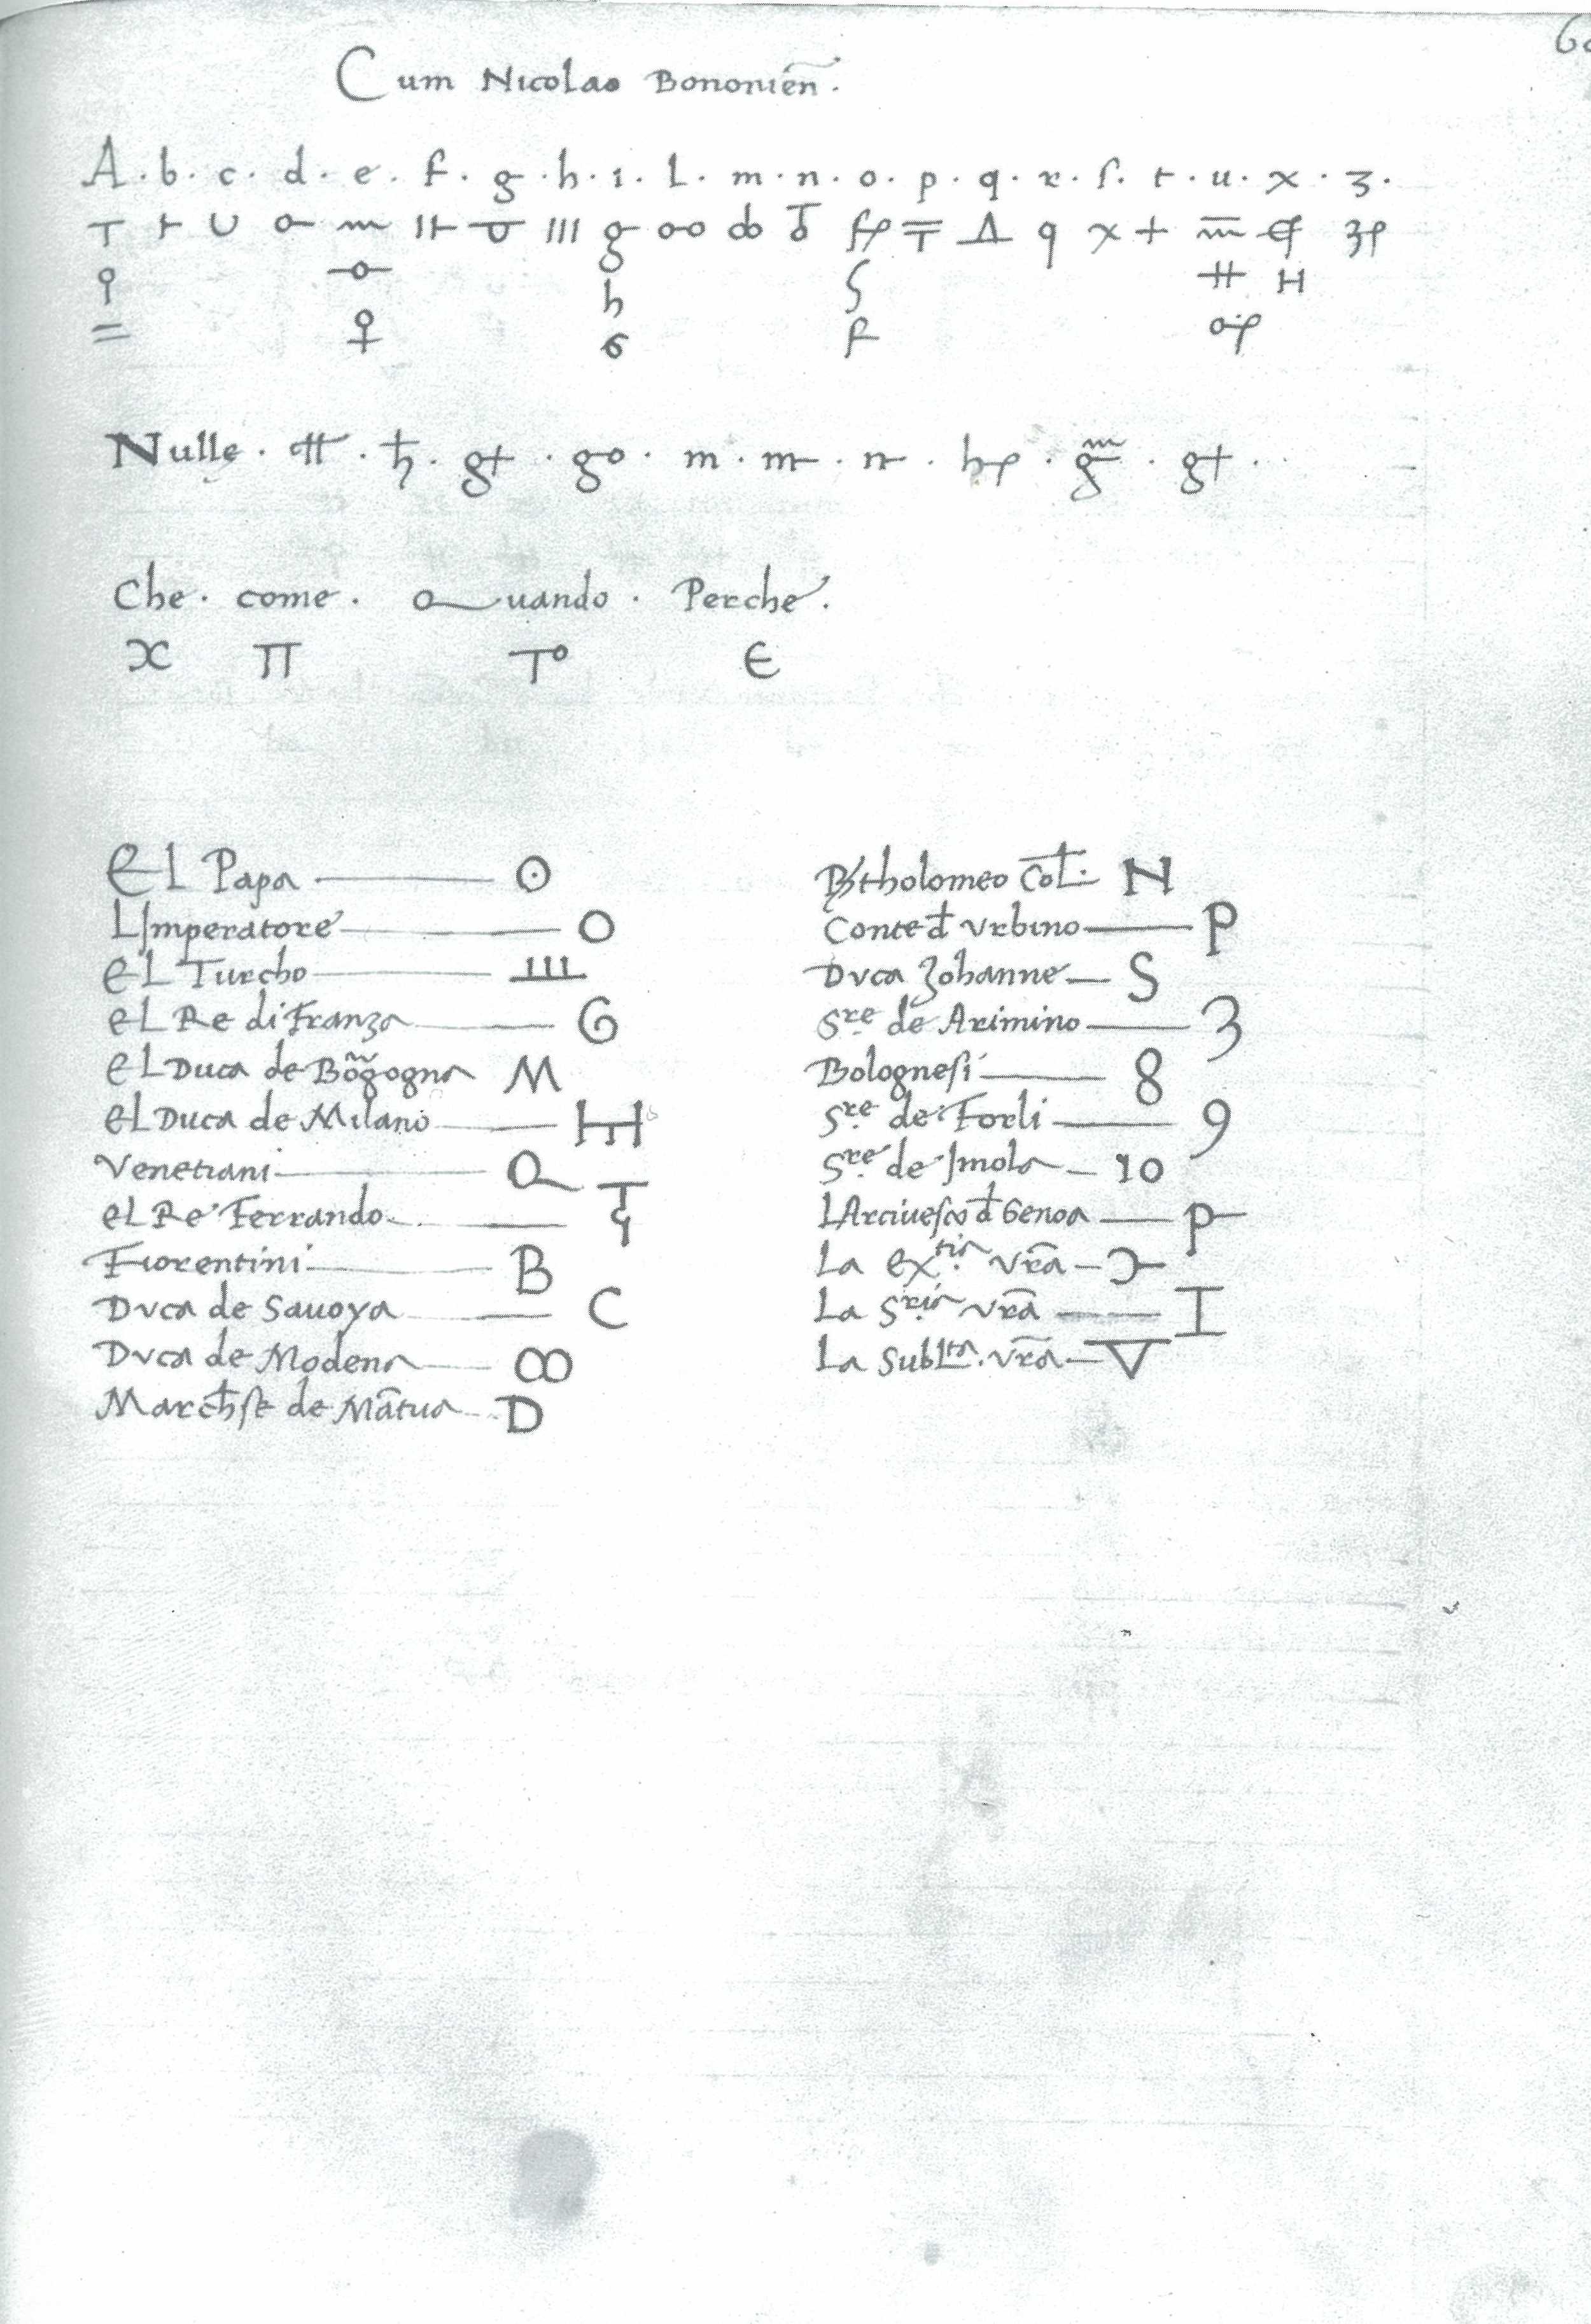 60
Cum Nicolao Bononień.
A · b · c · d · e · f · g · h · i · L · m · n · o · p · q · r · ſ · t · u · x · ʒ ·
Nulle ·
Che · come · Quando · Perche ·
x π T° ϵ
El Papa ——— ⊙
LImperatore ——— O
el Turcho ———
el Re di Franza ——— G
el Duca de Bo͂gogna M
el Duca de Milano ———
Venetiani ——— Q
el Re Ferrando ———
Fiorentini ——— B
Dvca de Sauoya ——— C
Dvca de Modena ——— ꝏ
Marchſe de Ma͂tua — D
Bartholomeo Col̄. N
Conte đ Vrbino ——— P
Dvca Zohanne — S
Sre de Arimino ——— 3
Bologneſi ——— 8
Sre de Forli ——— 9
Sre de Imola — 10
LArciueſco đ Genoa —
La extia vr̄a —
La Sria vr̄a — I
La Sublta. vr̄a —